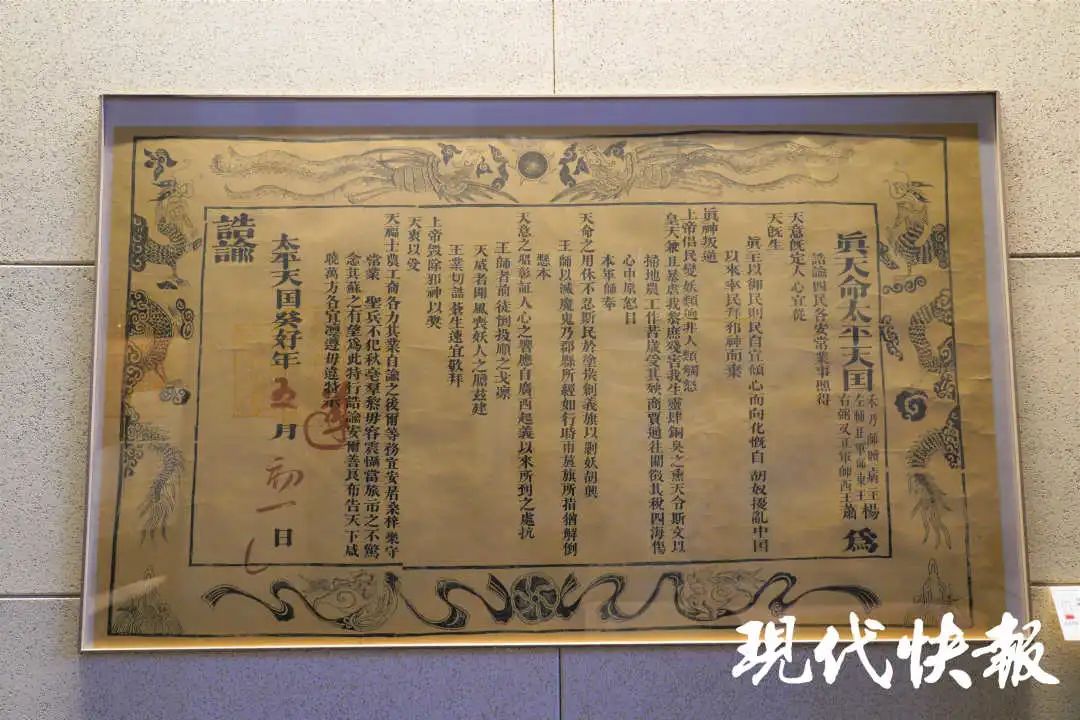 眞天命太平天囯
禾乃師贖病主
左輔正軍師東王楊
右弼又正軍師西王蕭
爲
誥諭四民各安常業事照得
天意旣定人心宜從
天旣生
眞主以御民則民自宜傾心而向化慨自 胡奴擾亂中囯
以來率民拜邪神而棄
眞神叛逆
上帝倡民變妖類逈非人類觸怒
皇天兼且暴虐我黎庶殘害我生靈肆銅臭之熏天令斯文以
掃地農工作苦歲受其殃商賈通往關徵其稅四海傷
心中原怒目
本軍師奉
天命之用休不忍斯民於塗炭創義旗以剿妖胡興
王師以滅魔鬼乃郡縣所經如行時雨旌旗所指猶解倒
懸本
天意之昭彰証人心之響應自廣西起義以來所到之處抗
王師者前徒倒投順之戈凛
天威者聞風喪妖人之膽茲建
王業切誥蒼生速宜敬拜
上帝毀除邪神以奬
天衷以受
天福士農工商各力其業自諭之後爾等務宜安居桑梓樂守
常業 聖兵不犯秋毫羣黎毋容震懾當旅市之不驚
念其蘇之有望爲此特行誥諭安爾善良布告天下咸
曉萬方各宜凛遵毋違特示
太平天囯癸好年五月初一日
誥諭
現代快報